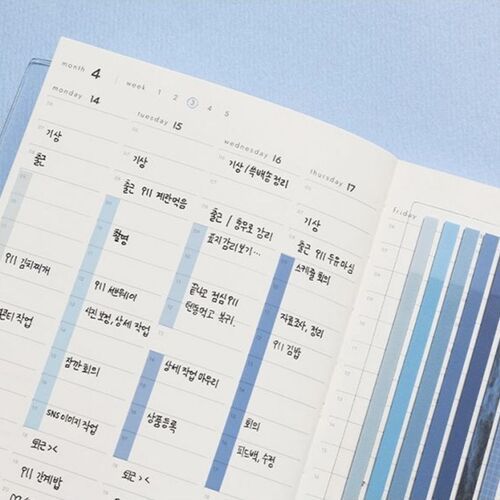 month 4 week 1 2 3 4 5
monday 14
기상
출근
911 김치찌개
SNS이미지 작업
퇴근><
911 간계밥
tuesday 15
기상
출근 911 계란먹음
촬영
911 쌘뒤위이
사진 보정, 상세 작업
잠깐 회의
퇴근><
wednesday 16
기상/쑥배송 정리
출근 / 충무로 감리
표지감리보기...
끝나고 점심 911
텐동먹고 복귀.
상세 작업 마무리
상품등록
퇴근><
thursday 17
기상
출근 911 두유 마심
스케쥴 회의
자료조사, 정리
911 김밥
회의
피드백, 수정
friday